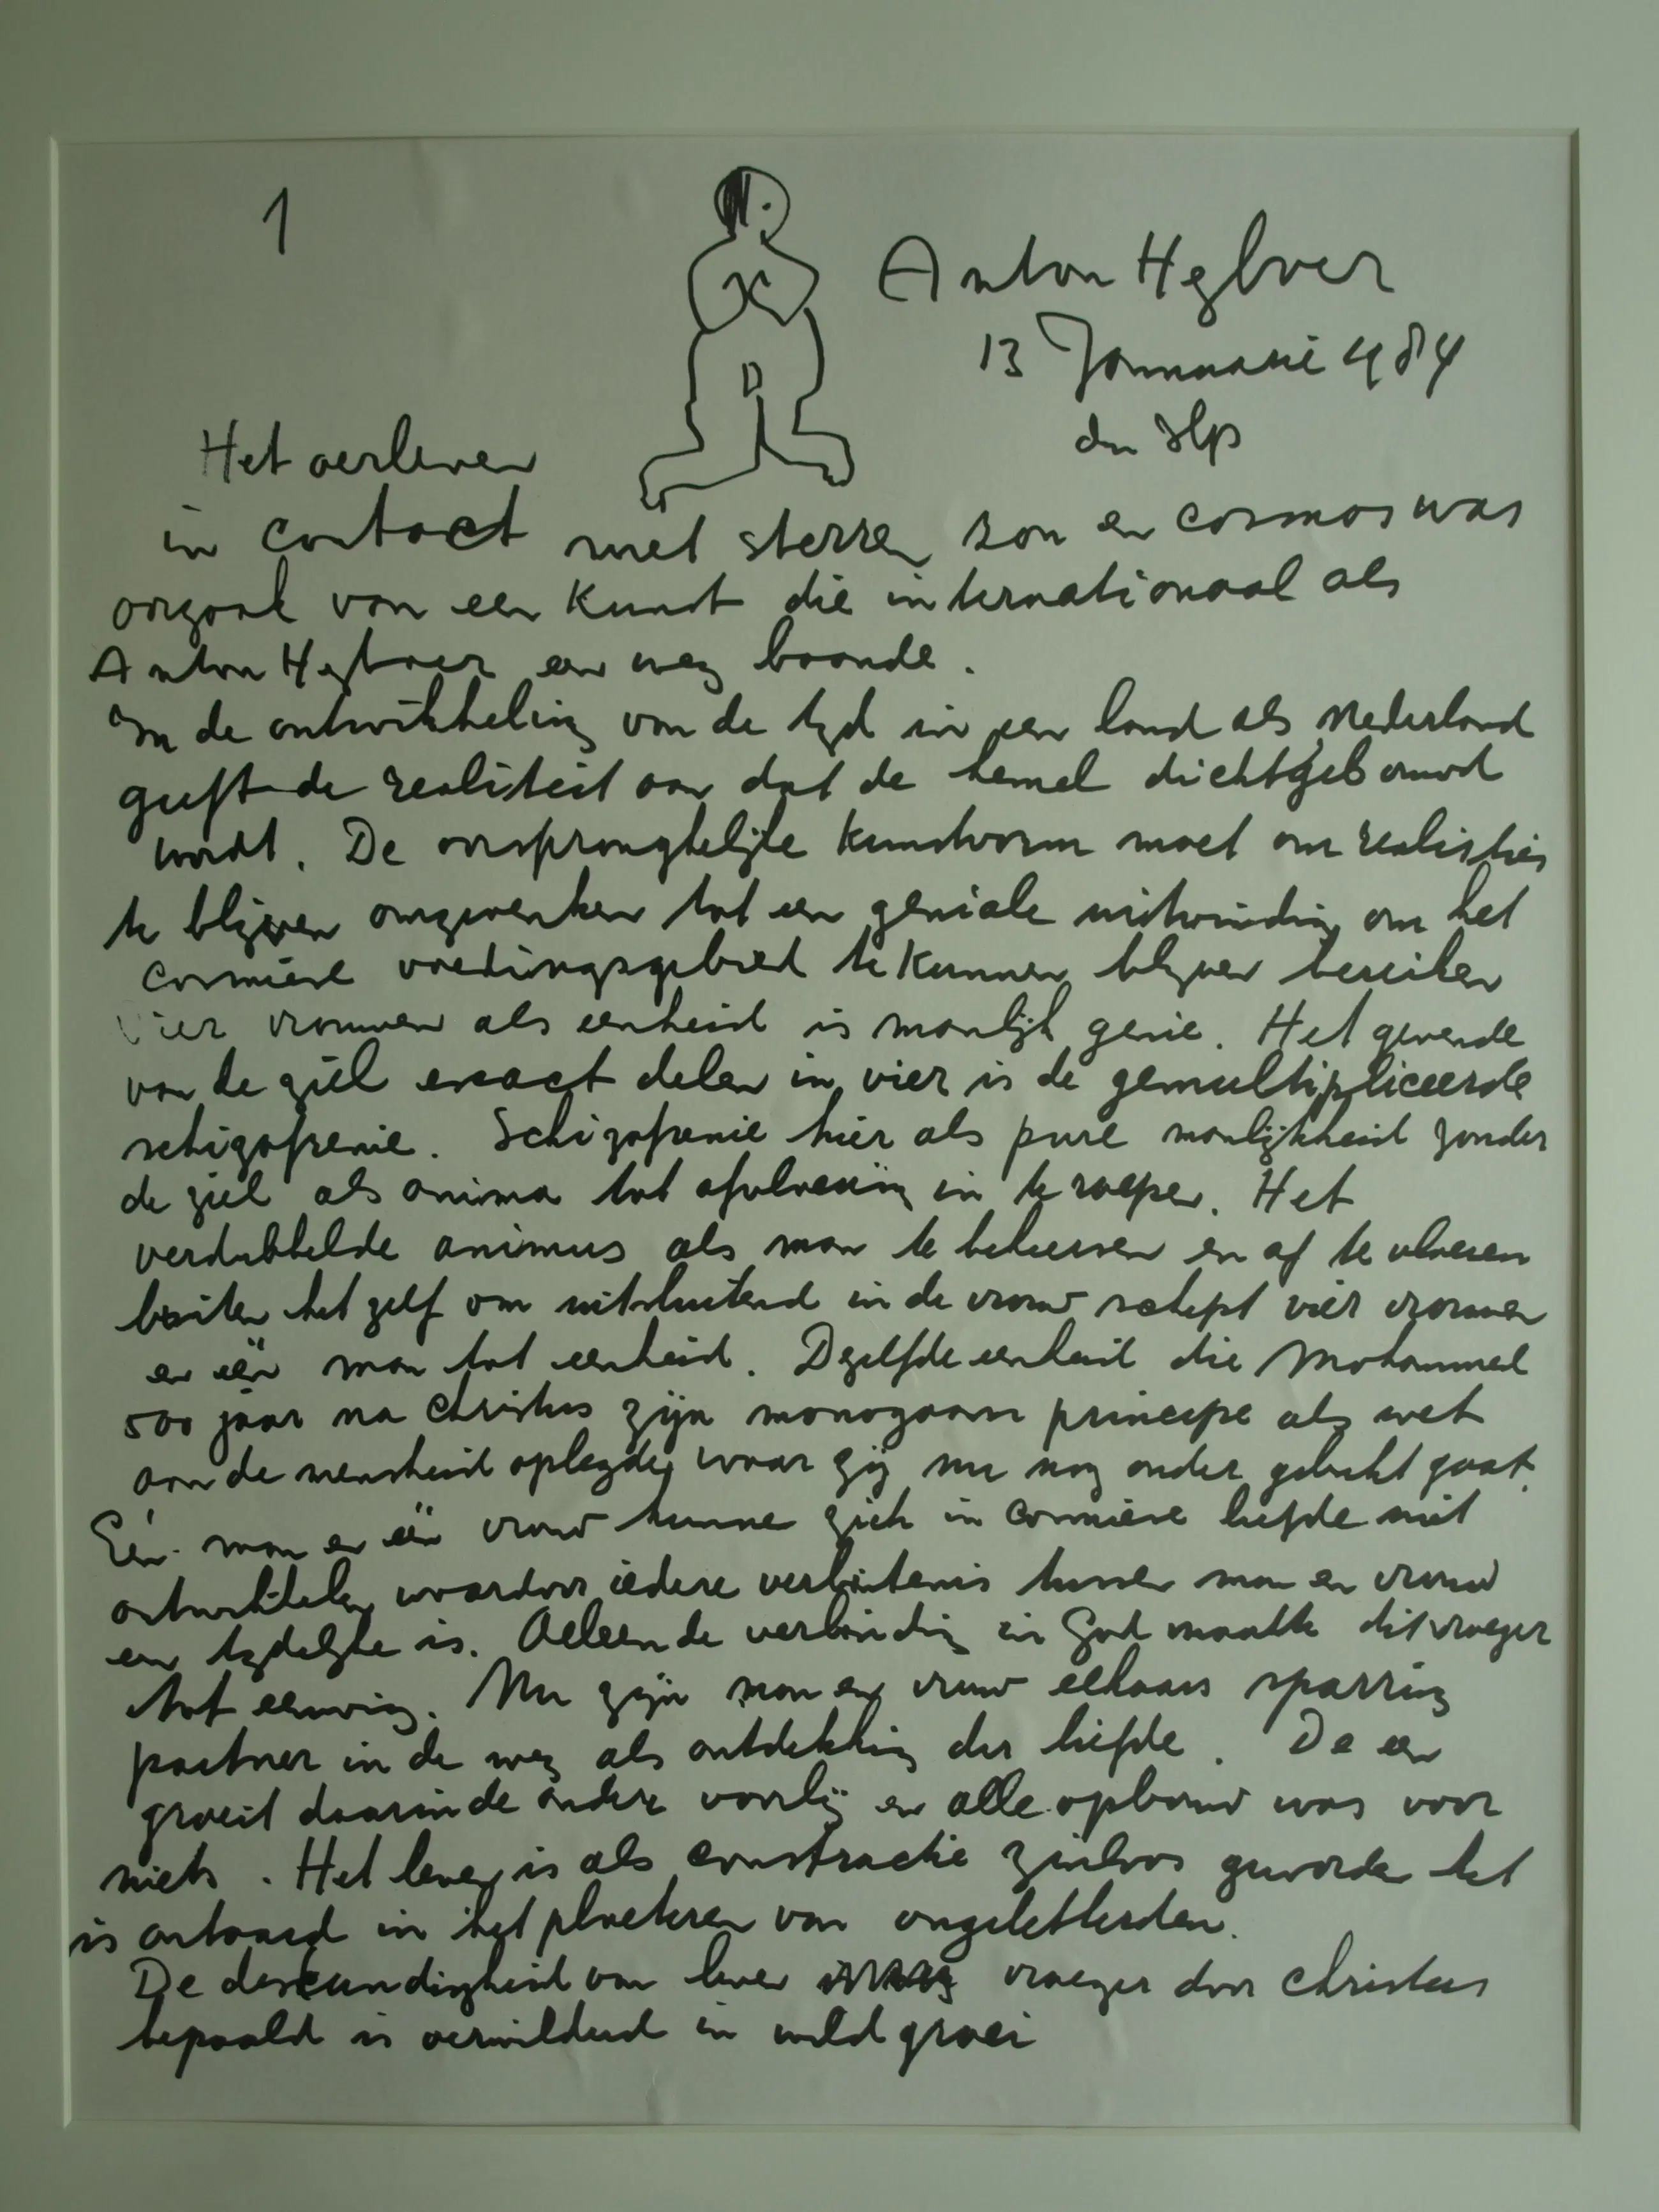 1
Anton Heyboer
13 Januarie 1984
den Ilp
Het overleven
in contact met sterren zon en cosmos was
oorzaak van een Kunst die internationaal als
Anton Heyboer een weg baande.
In de ontwikkeling van de tyd in een land als Nederland
geeft de realiteit aan dat de hemel dichtgebouwd
wordt. De oorspronghelijke Kunstvorm moet om realisties
te blijven omgewerken tot een geniale uitvinding om het
cosmiese voedingsgebied te Kunnen blyven bereiken
Vier vrouwen als eenheid is manlijk genie. Het gevende
van de ziel exact delen in vier is de gemultipliceerde
schizofrenie. Schizofrenie hier als pure manlijkheid zonder
de ziel als anima tot afvloeiing in te roepen. Het
verdubbelde animus als man te beheersen en af te vloeien
buiten het zelf om uitsluitend in de vrouw schept vier vrouwen
en één man tot eenheid. Dezelfde eenheid die Mohammed
500 jaar na Christus zijn monogaam principe als wet
aan de mensheid oplegde, waar zij nu nog onder gebukt gaat.
Eén man en één vrouw kunne zich in cosmiese liefde uit
ontwikkelen waardoor iedere verbintenis tussen man en vrouw
een tydelyke is. Alleen de verbinding in God maakte dit vroeger
tot eeuwig. Nu zijn man en vrouw elkaars sparring
partner in de weg als ontdekking der liefde. De een
groeit daarin de andere voorbij en alle opbouw was voor
niets. Het leven is als constructie zinloos geworden het
is ontaard in het ploeteren van ongeletterden.
De deskundigheid van leven vroeger door Christus
bepaald is verwilderd in wildgroei